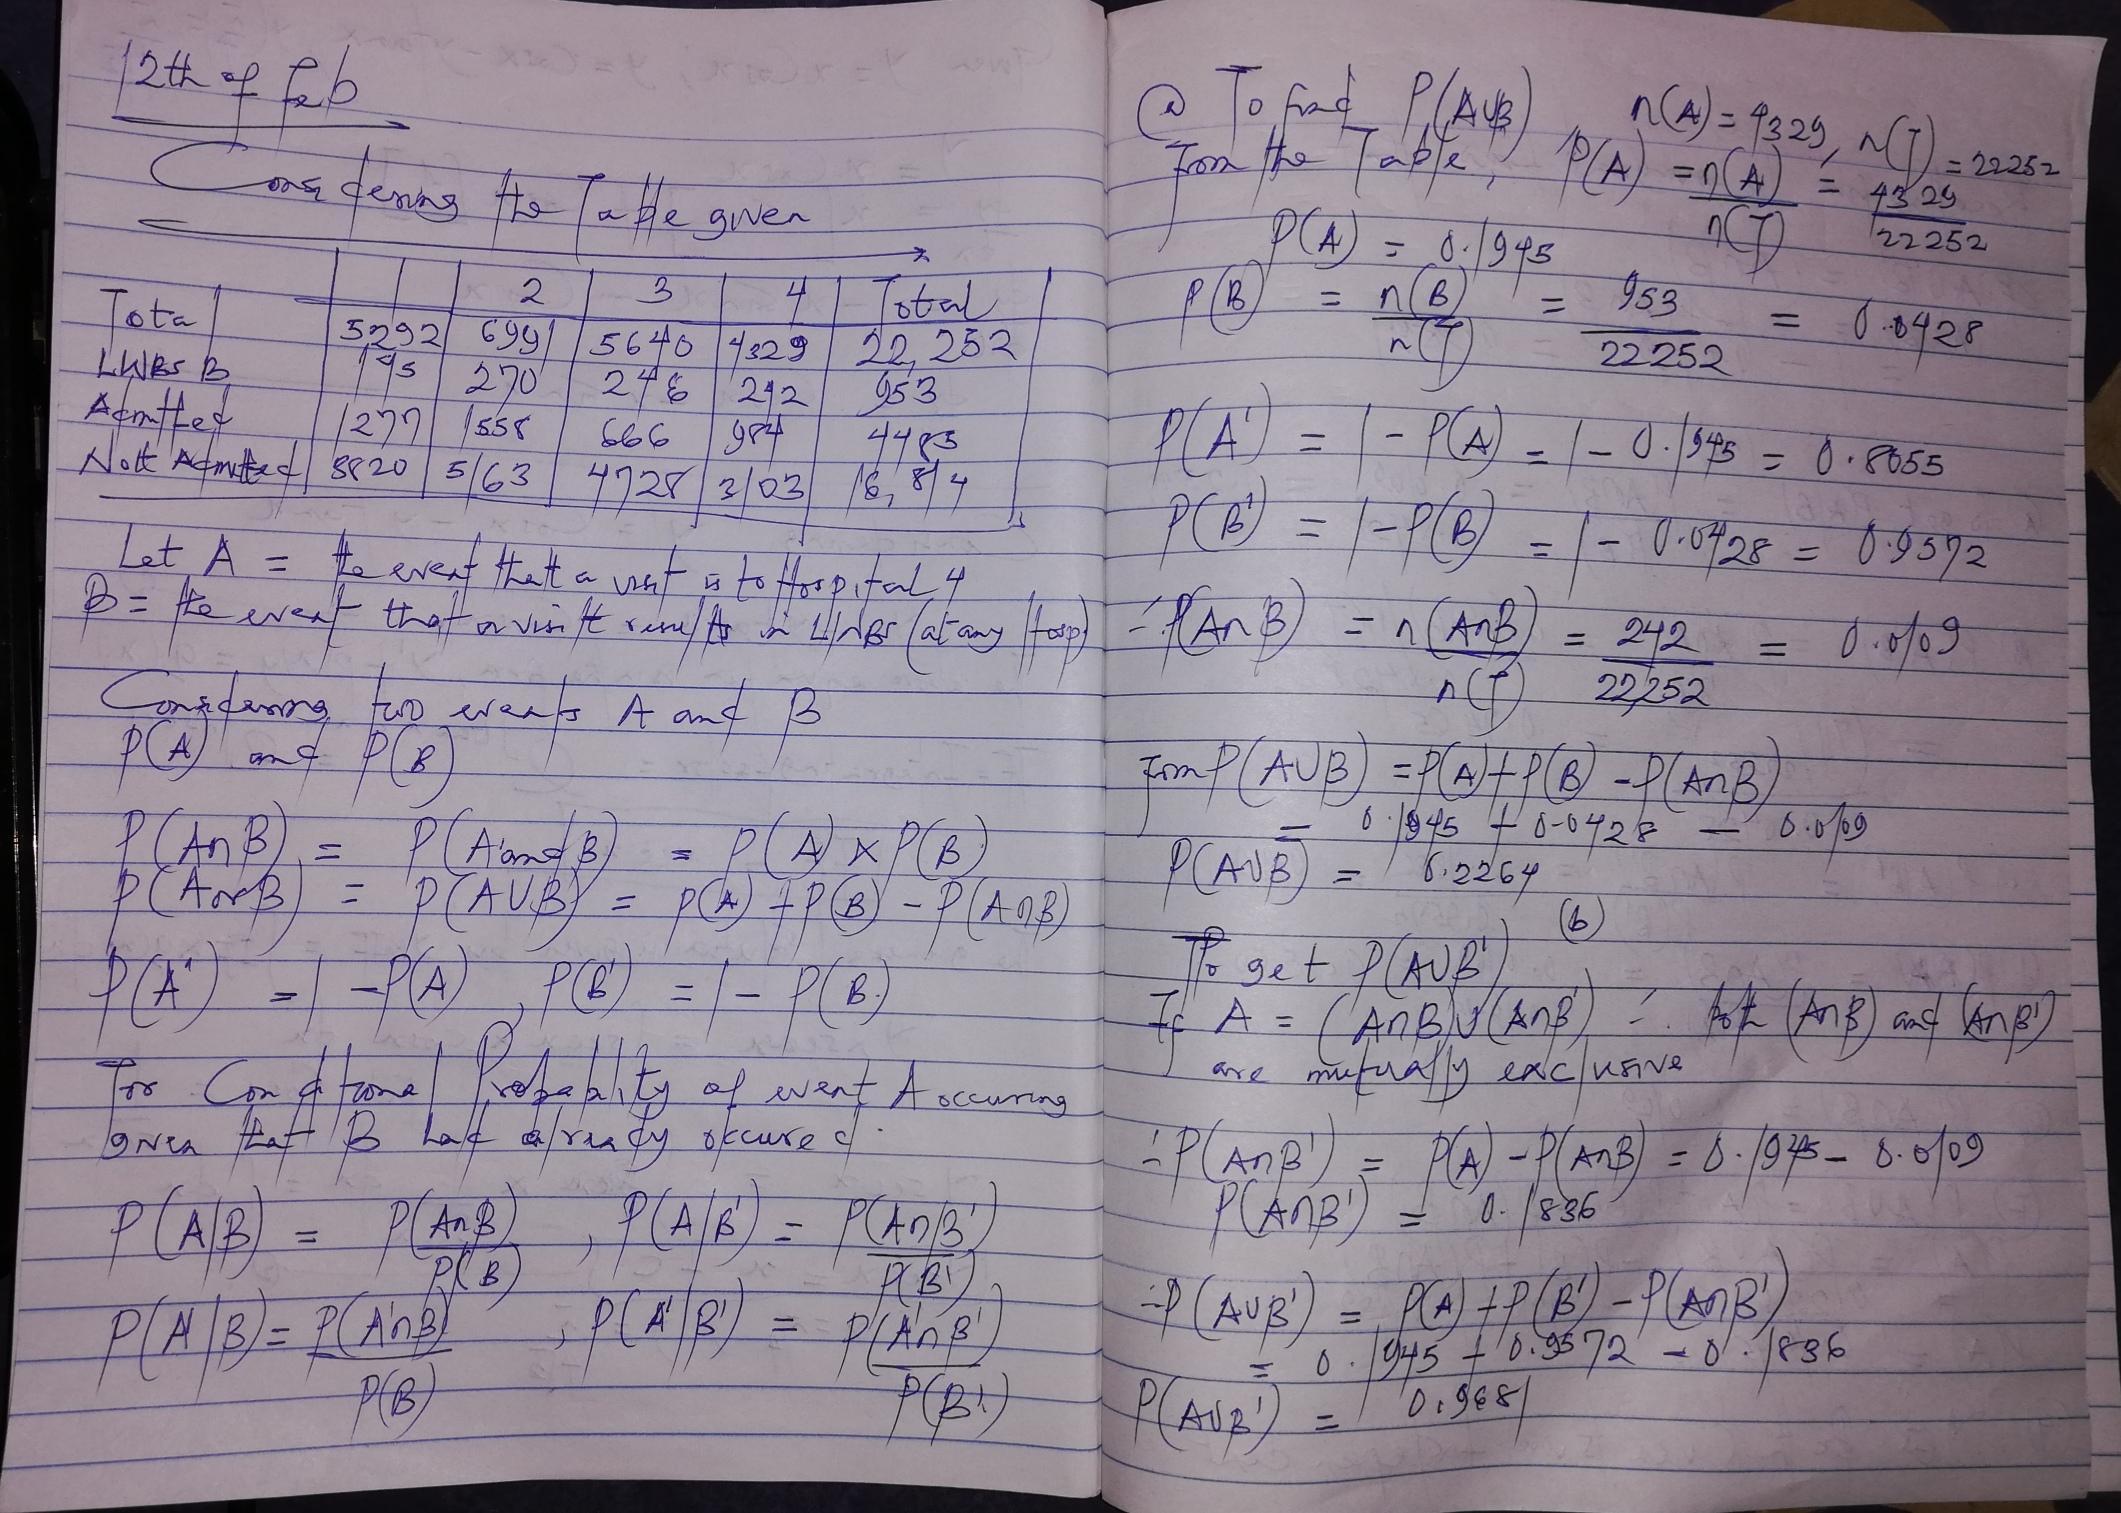 12th of Feb
Considering the Table given
1 2 3 4 Total
Total 5292 6991 5640 4329 22,252
LWBS B 195 270 246 242 953
Admitted 1277 1558 666 984 4485
Nott Admitted 3820 5163 4728 3103 16,814
Let A = the event that a visit is to Hospital 4
B = the event that a visit results in LWBS (at any Hosp)
Considering two events A and B
P(A) and P(B)
P(A∩B) = P(A and B) = P(A) x P(B)
P(A or B) = P(A∪B) = P(A) + P(B) - P(A∩B)
P(A') = 1 - P(A), P(B') = 1 - P(B)
For Conditional Probability of event A occuring
given that B had already occured.
P(A|B) = P(A∩B)/P(B), P(A|B') = P(A∩B')/P(B')
P(A'|B) = P(A'∩B)/P(B), P(A'|B') = P(A'∩B')/P(B')
@ To find P(A∪B) n(A) = 4329, n(T) = 22252
From the Table, P(A) = n(A)/n(T) = 4329/22252
P(A) = 0.1945
P(B) = n(B)/n(T) = 953/22252 = 0.0428
P(A') = 1 - P(A) = 1 - 0.1945 = 0.8055
P(B') = 1 - P(B) = 1 - 0.0428 = 0.9572
∴ P(A∩B) = n(A∩B)/n(T) = 242/22252 = 0.0109
From P(A∪B) = P(A) + P(B) - P(A∩B)
= 0.1945 + 0.0428 - 0.0109
P(A∪B) = 0.2264
(b)
To get P(A∪B')
If A = (A∩B)∪(A∩B') ∴ both (A∩B) and (A∩B')
are mutually exclusive
∴ P(A∩B') = P(A) - P(A∩B) = 0.1945 - 0.0109
P(A∩B') = 0.1836
∴ P(A∪B') = P(A) + P(B') - P(A∩B')
= 0.1945 + 0.9572 - 0.1836
P(A∪B') = 0.9681